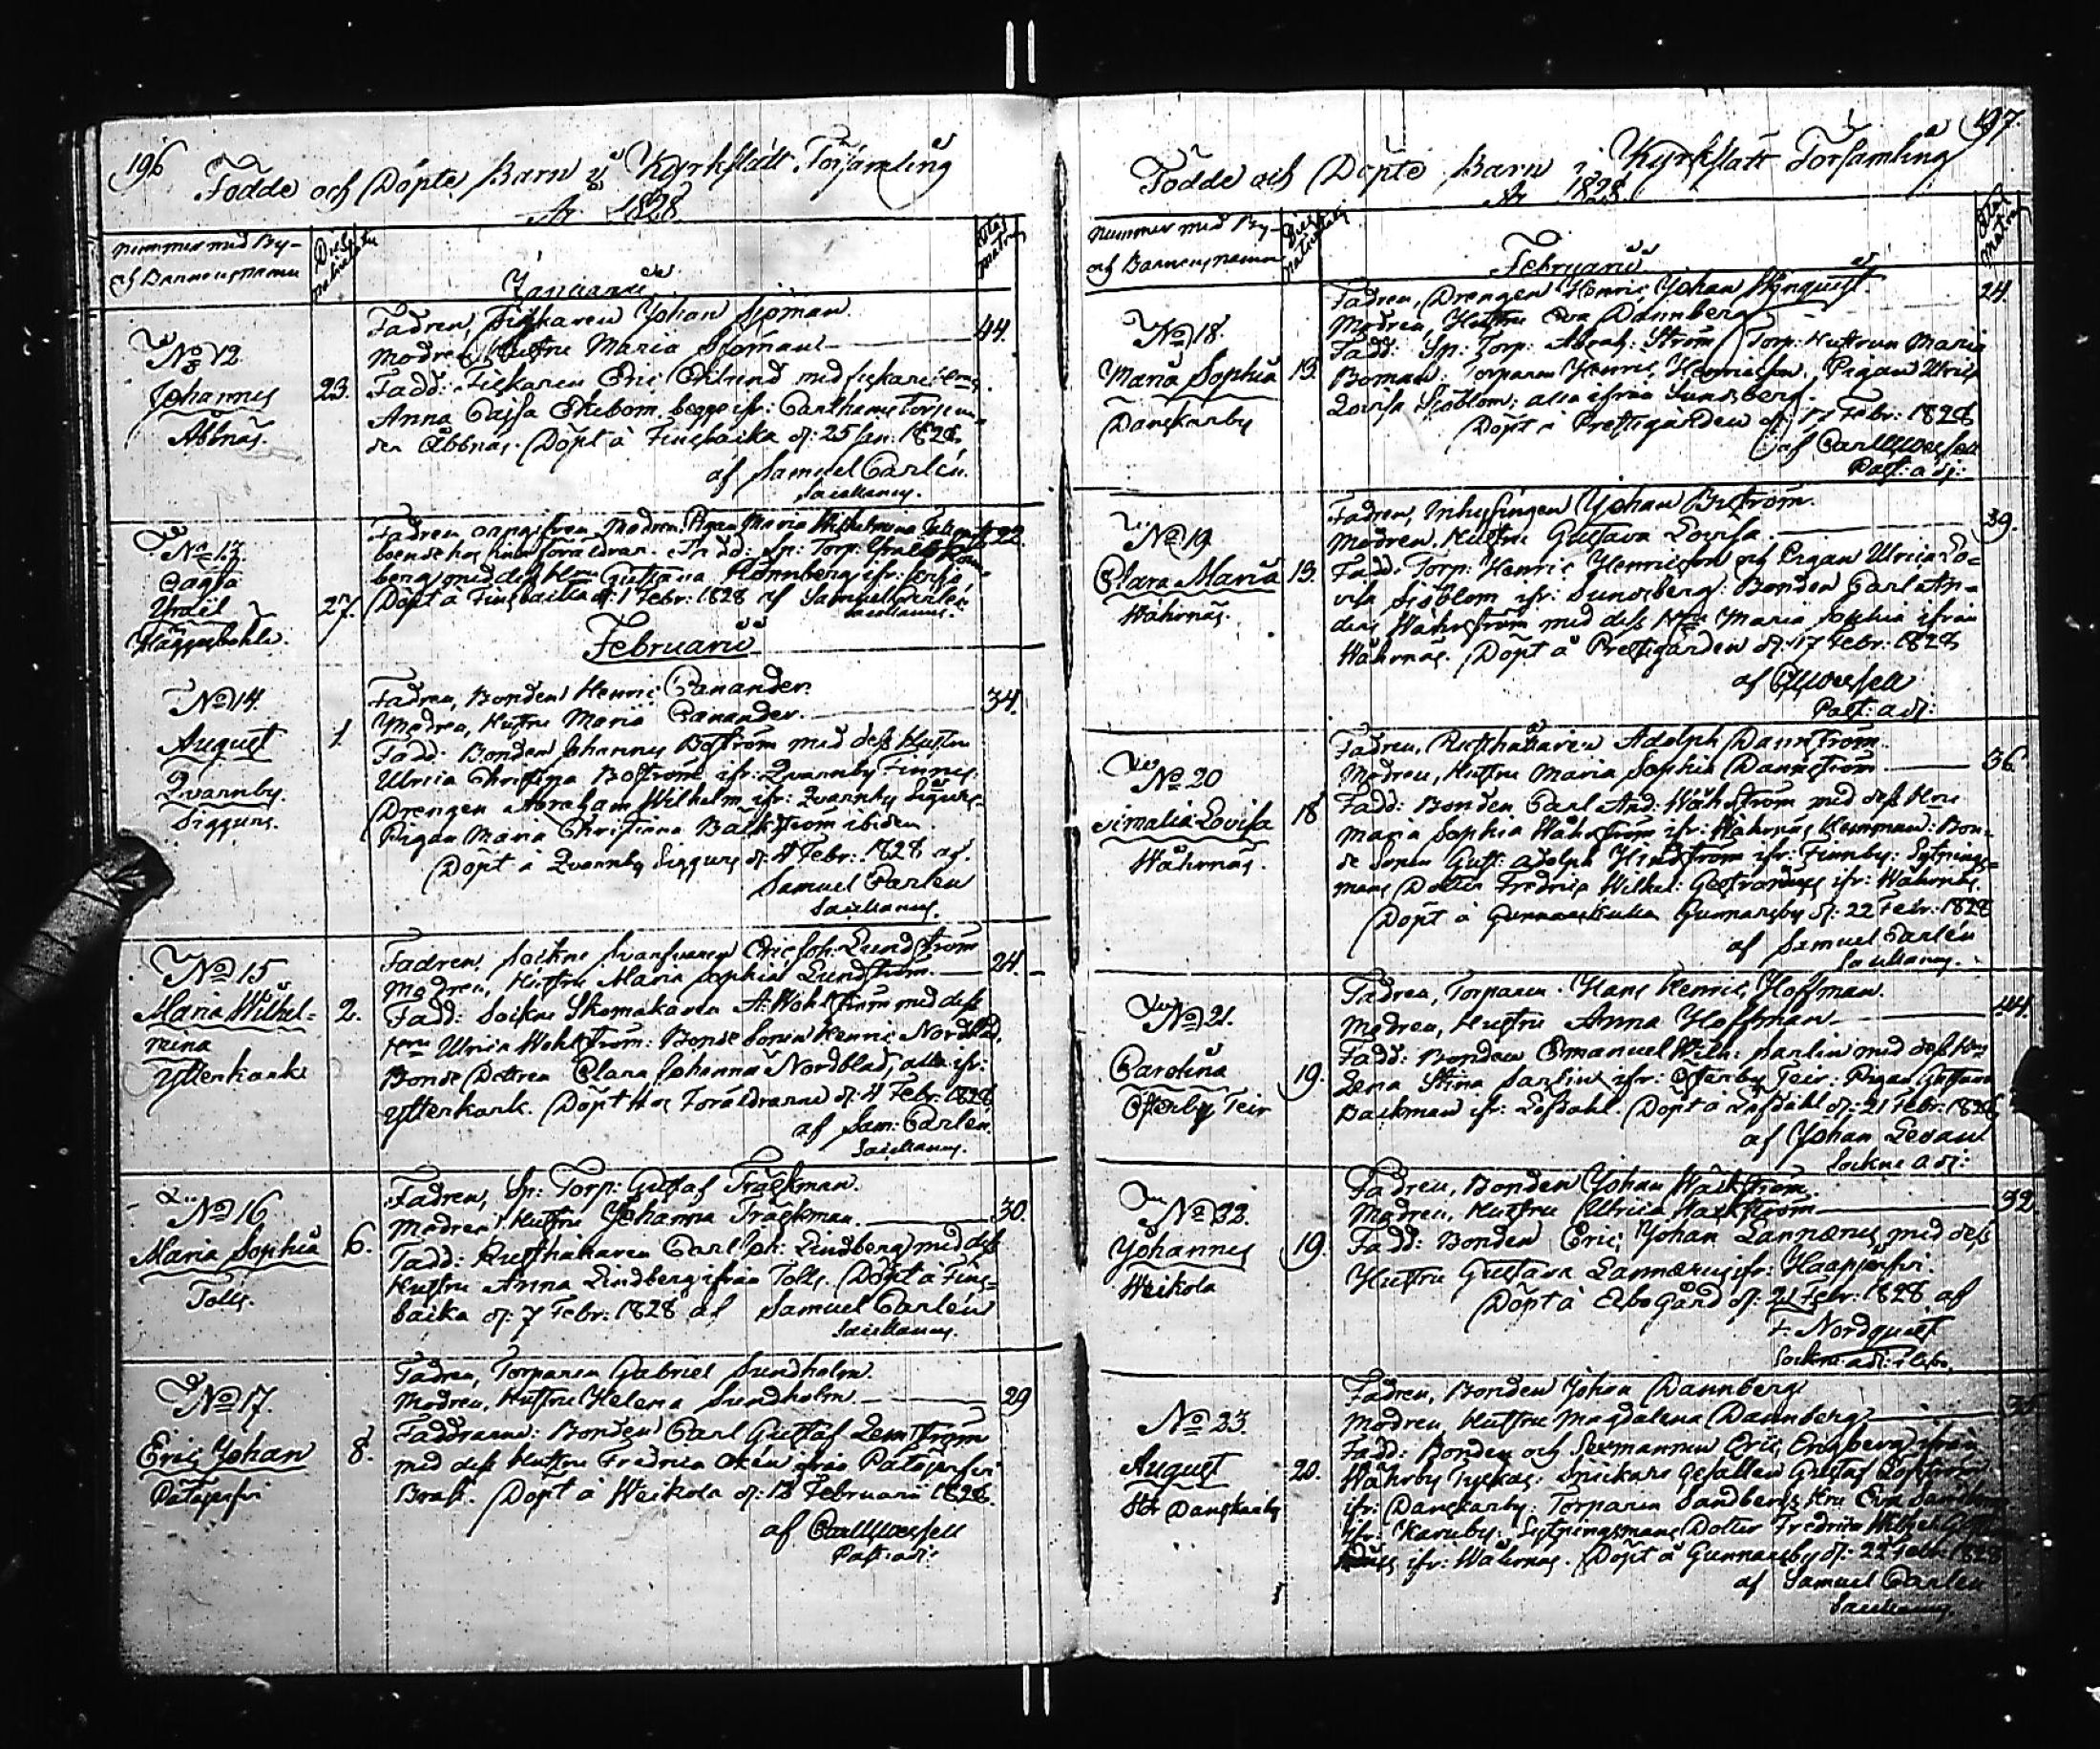 196
Födde och Döpte Barn i Kyrkslätt Församling
År 1828
Nummer med By-
och Barnens namn
Dies
Januarii
No 12
Johannes
Åbbnäs
23.
Fadren, Fiskaren Johan Sjöman
Modren Hustru Maria Sjöman
44.
Fadd: Fiskaren Eric Eklund med fiskare
Anna Cajsa Ekebom, begge ifr:
Åbbnäs. Döpt å Finsbacka d: 25 Jan: 1828
af Samuel Carlén
Sacellanus.
No 13
Cajsa
27.
Fadren oangifven Modren Pigan Maria Wilhelmina
22.
boende hos sina föräldrar. Fadd: Sp: Torp:
berg med dess Rönnberg ifr:
Döpt å Finsbacka d: 1 Febr: 1828 af Samuel Carlén
Sacellanus.
Februarii
No 14.
August
Qvarnby
Siggurs.
1.
Fadren, Bonden Henric Cananders
Modren, Hustru Maria Cananders.
34.
Fadd: Bonden Johannes Boström med dess Hustru
Ulrica Christina Boström ifr: Qvarnby Finnis
Drengen Abraham Wilhelm ifr: Qvarnby Sigurs
Pigan Maria Christina Backström ibidem
Döpt å Qvarnby Siggurs d: 4 Febr: 1828 af
Samuel Carlén
Sacellanus.
No 15
Maria Wilhel=
mina
Ytterkurk
2.
Fadren, Sockne Eric Joh: Lundström
Modren, Hustru Maria Sophia Lundström
24.
Fadd: Sockne Skomakaren A: Wohlström med dess
Hru Ulrica Wohlström: Bonde Sonen Henric Nordblad,
Bonde Dottren Clara Johanna Nordblad, alla ifr:
Ytterkurk. Döpt Hos Föräldrarne d: 4 Febr: 1828
af Sam: Carlén.
Sacellanus.
No 16
Maria Sophia
Tolls.
6.
Fadren, Sp: Torp: Gustaf Träskman.
Modren Hustru Johanna Träskman.
30.
Fadd: Rusthållaren Carl Joh: Lindberg med dess
Hustru Anna Lindberg ifrån Tolls. Döpt å Fins=
backa d: 7 Febr: 1828 af Samuel Carlén
Sacellanus.
No 17.
Eric Johan
Patajerfvi
8.
Fadren, Torparen Gabriel Sundholm.
Modren, Hustru Helena Sundholm.
29
Faddrarne: Bonden Carl Gustaf Lemström
med dess Hustru Fredrica ifrån Patajerfvi
Döpt å Weikola d: Februarii 1828.
af Carl
Past: adj:
197.
Födde och Döpte Barn i Kyrkslätt Församling
År 1828
Nummer med By-
och Barnens namn
Februarii
No 18.
Maria Sophia
Danskarby
13.
Fadren, Drengen Henric Johan
24.
Modren, Hustru Eva Dannberg
Fadd: Sp: Torp: Abrah: Ström, Torp: Hustrun Maria
Boman: Torparen Henric Henricsson, Pigan Ulrica
Lovisa Sjöblom: alla ifrån Sundsberg.
Döpt i Prestgården d: 17 Febr: 1828
af Carl
Past: adj:
No 19
Clara Maria
Wåhrnäs.
13.
Fadren, Inhysingen Johan
Modren, Hustru Gustava Lovisa.
39.
Fadd: Torp: Henric Henricsson och Pigan Ulrica Lo=
visa Sjöblom ifr: Sundsberg: Bonden Carl An=
ders Wåhrström med dess Hru Maria Sophia ifrån
Wåhrnäs. Döpt å Prestgården d: 17 Febr: 1828
af
Past: adj:
No 20
Amalia Lovisa
Wåhrnäs.
18
Fadren, Rusthållaren Adolph Dannström
Modren, Hustru Maria Sophia Dannström
36.
Fadd: Bonden Carl And: Wåhrström med dess Hru
Maria Sophia Wåhrström ifr: Wåhrnäs: Bon=
de Sonen Gust: Adolph Hindström ifr: Finnby: Sytnings=
mans Dotter Fredrica Wilhel: ifr: Wåhrnäs.
Döpt å Gunnarsby d: 22 Febr: 1828
af Samuel Carlén
Sacellanus.
No 21.
Carolina
Österby Teir
19.
Fadren, Torparen Hans Henric Hoffman.
Modren, Hustru Anna Hoffman
44.
Fadd: Bonden Emanuel Wilh: Sarlin med dess Hru
Lena Stina Sarlin, ifr: Österby Teir: Pigan Gustava
Backman ifr: Löfdahl. Döpt å Löfdahl d: 21 Febr: 1828
af Johan
Sockne adj:
No 22.
Johannes
Weikola
19.
Fadren, Bonden Johan Wäckström
Modren, Hustru Ulrica Wäckström
32
Fadd: Bonden Eric Johan Lannærus med dess
Hustru Gustava Lannærus ifr: Haapjerfvi.
Döpt å Esbo Gård d: 21 Febr: 1828 af
F. Nordquist
Sockne adj: i Esbo.
No 23.
August
Stor Danskarby
20.
Fadren, Bonden Johan Dannberg
Modren Hustru Magdalena Dannberg
Fadd: Bonden och Sexmannen Eric Engberg ifrån
Wåhrby: Snickare Gesällen Gustaf
ifr: Danskarby: Torparen Sandbergs Hru Eva
ifr: Karuby: Sytningsmans Dotter Fredrica Wilhel:
ifr: Wåhrnäs. Döpt å Gunnarsby d: 22 Febr: 1828
af Samuel Carlén
Sacellanus.